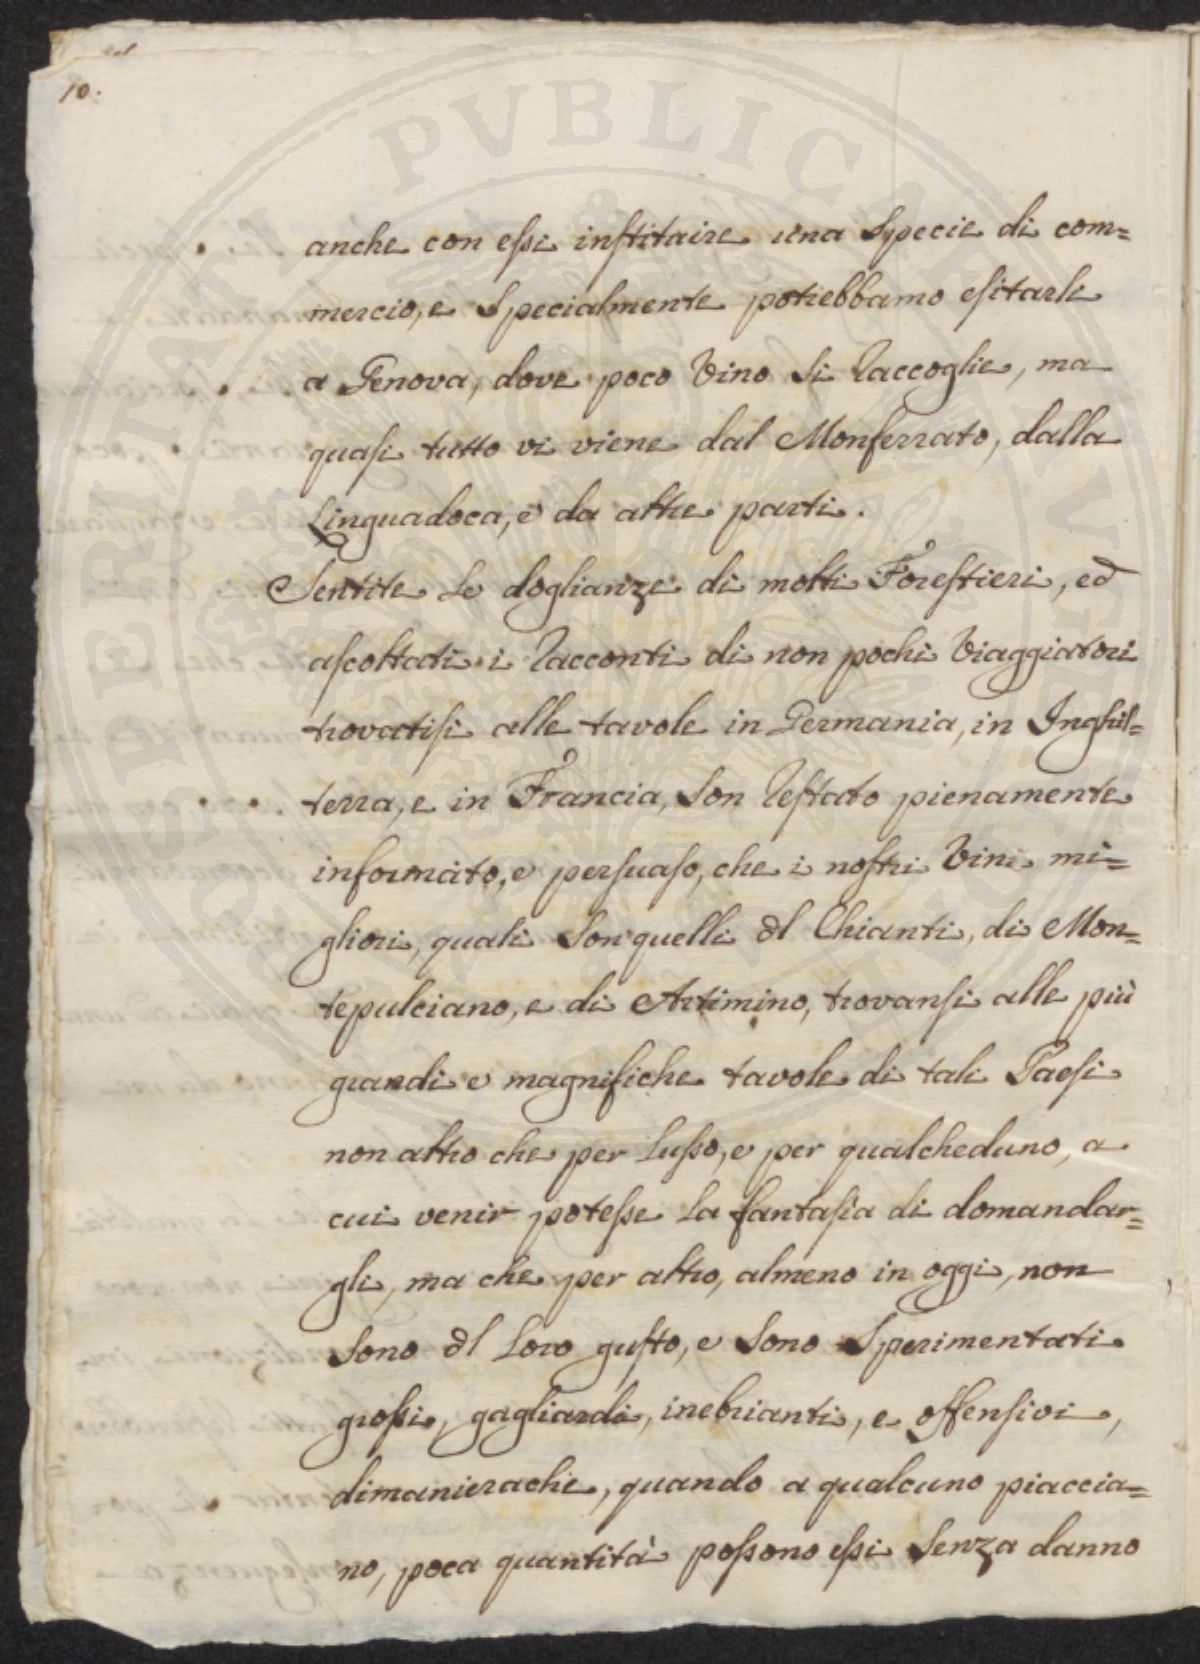 10.
PROSPERITATI PVBLICAE AVGENDAE
anche con essi instituire una Specie di com=
mercio, e Specialmente potrebbamo esitarli
a Genova, dove poco Vino Si Raccoglie, ma
quasi tutto vi viene dal Monferrato, dalla
Linguadoca, e da altre parti.
Sentite Le doglianze di molti Forestieri, ed
ascoltati i Racconti di non pochi Viaggiatori
trovatisi alle tavole in Germania, in Inghil=
terra, e in Francia, Son Restato pienamente
informato, e persuaso, che i nostri Vini mi=
gliori, quali Son quelli dl Chianti, di Mon=
tepulciano, e di Artimino, trovansi alle più
grandi e magnifiche tavole di tali Paesi
non altro che per Lusso, e per qualcheduno, a
cui venir potesse La fantasia di domandar=
gli, ma che per altro, almeno in oggi, non
Sono dl Loro gusto, e Sono Sperimentati
grossi, gagliardi, inebrianti, e offensivi,
dimanierache, quando a qualcuno piaccia=
no, poca quantità possono essi Senza danno